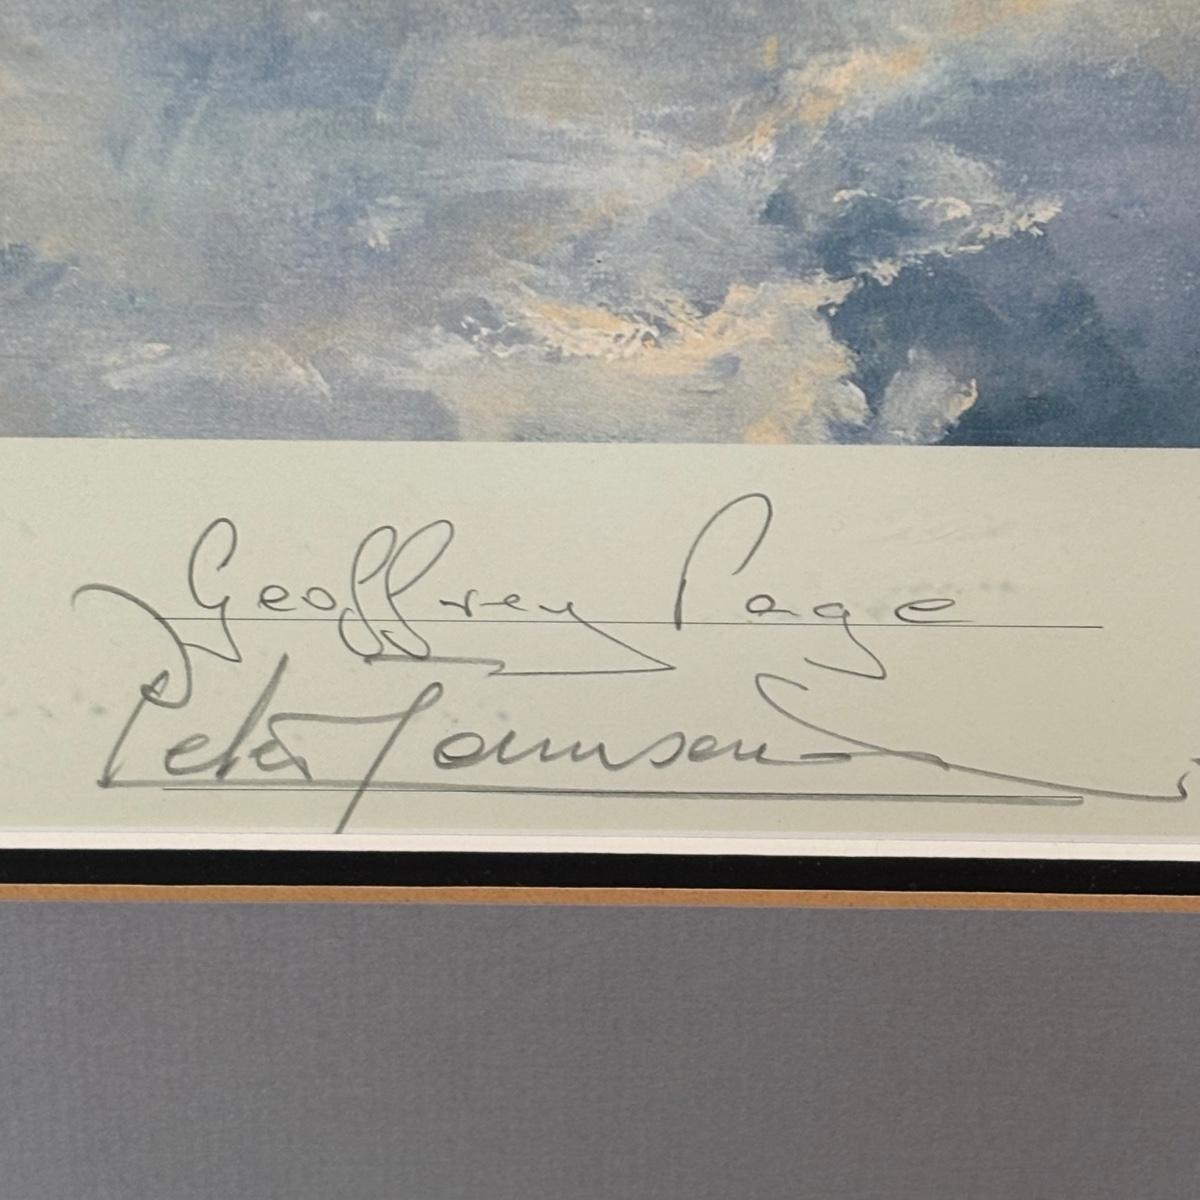 Geoffrey Page
Peter Townsend